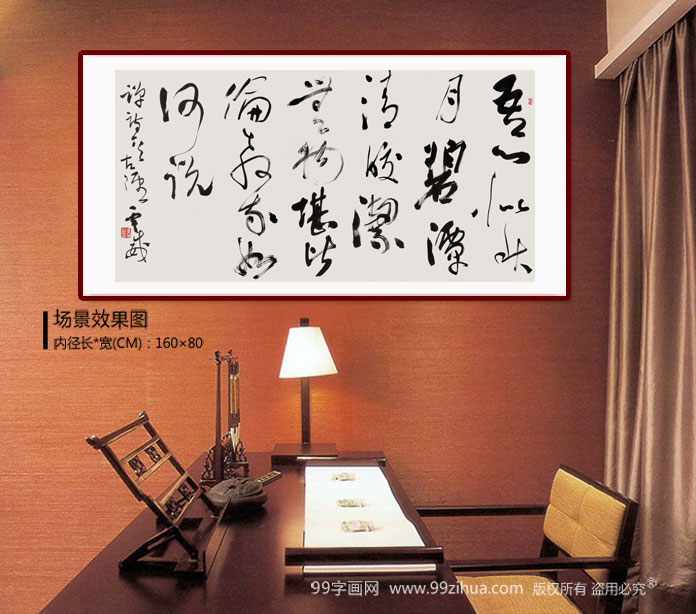 吾心似秋
月碧潭
清皎潔
無物堪比
倫教我如
何説
场景效果图
内径长*宽(CM)：160×80
99字画网 www.99zihua.com 版权所有 盗用必究®